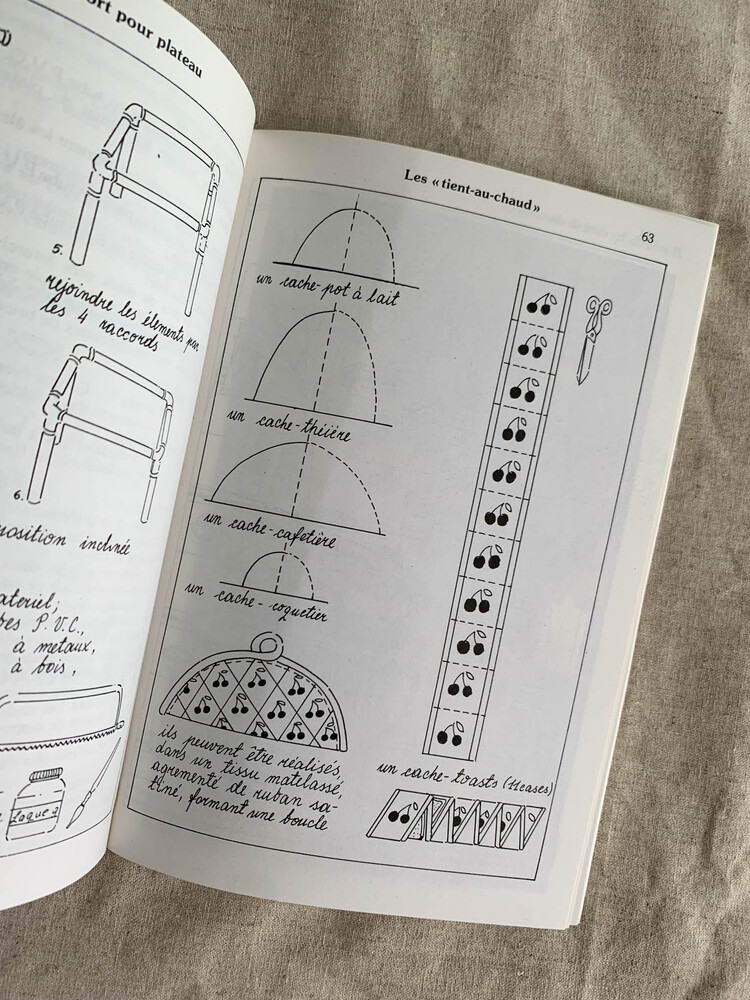 ort pour plateau
5.
rejoindre les éléments par
les 4 raccords
6.
position inclinée
ateriel;
bes P.V.C.,
à metaux,
à bois,
Laque
Les « tient-au-chaud »
63
un cache-pot à lait
un cache-théière
un cache-cafetière
un cache-coquetier
ils peuvent être réalisés,
dans un tissu matelassé,
agrementé de ruban sa-
tiné, formant une boucle
un cache-toasts (11 cases)